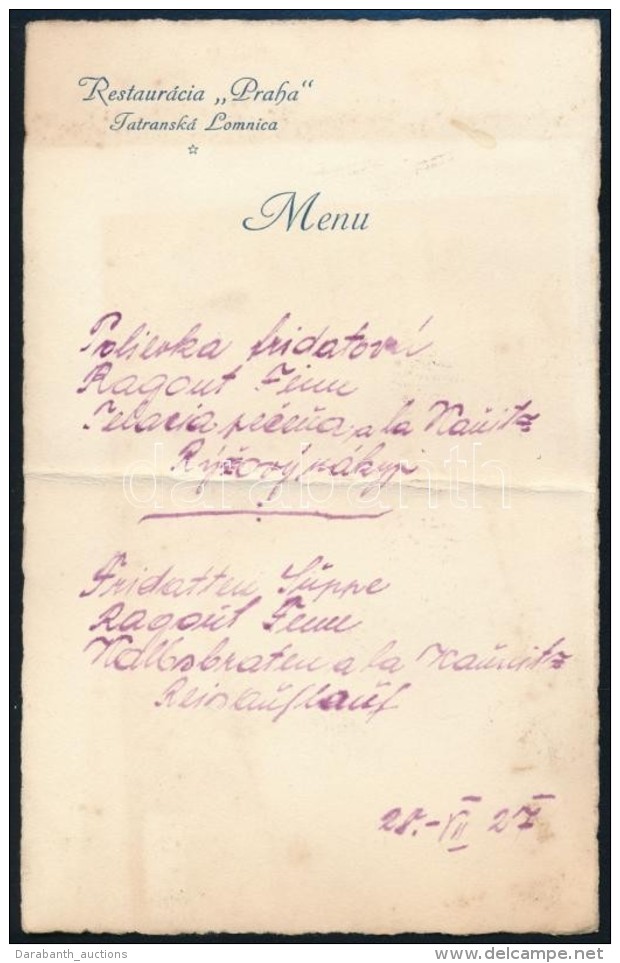 Restaurácia „Praha“
Tatranská Lomnica
Menu
Polievka fridatová
Ragout Feinn
Telacia pečeňa, a la Kaunitz
Rýžový nákyp
darabanth
Fridatten Suppe
Ragout Feinn
Kalbsbraten a la Kaunitz
Reisauflauf
28.-VII 27
Darabanth_auctions
delcampe.net